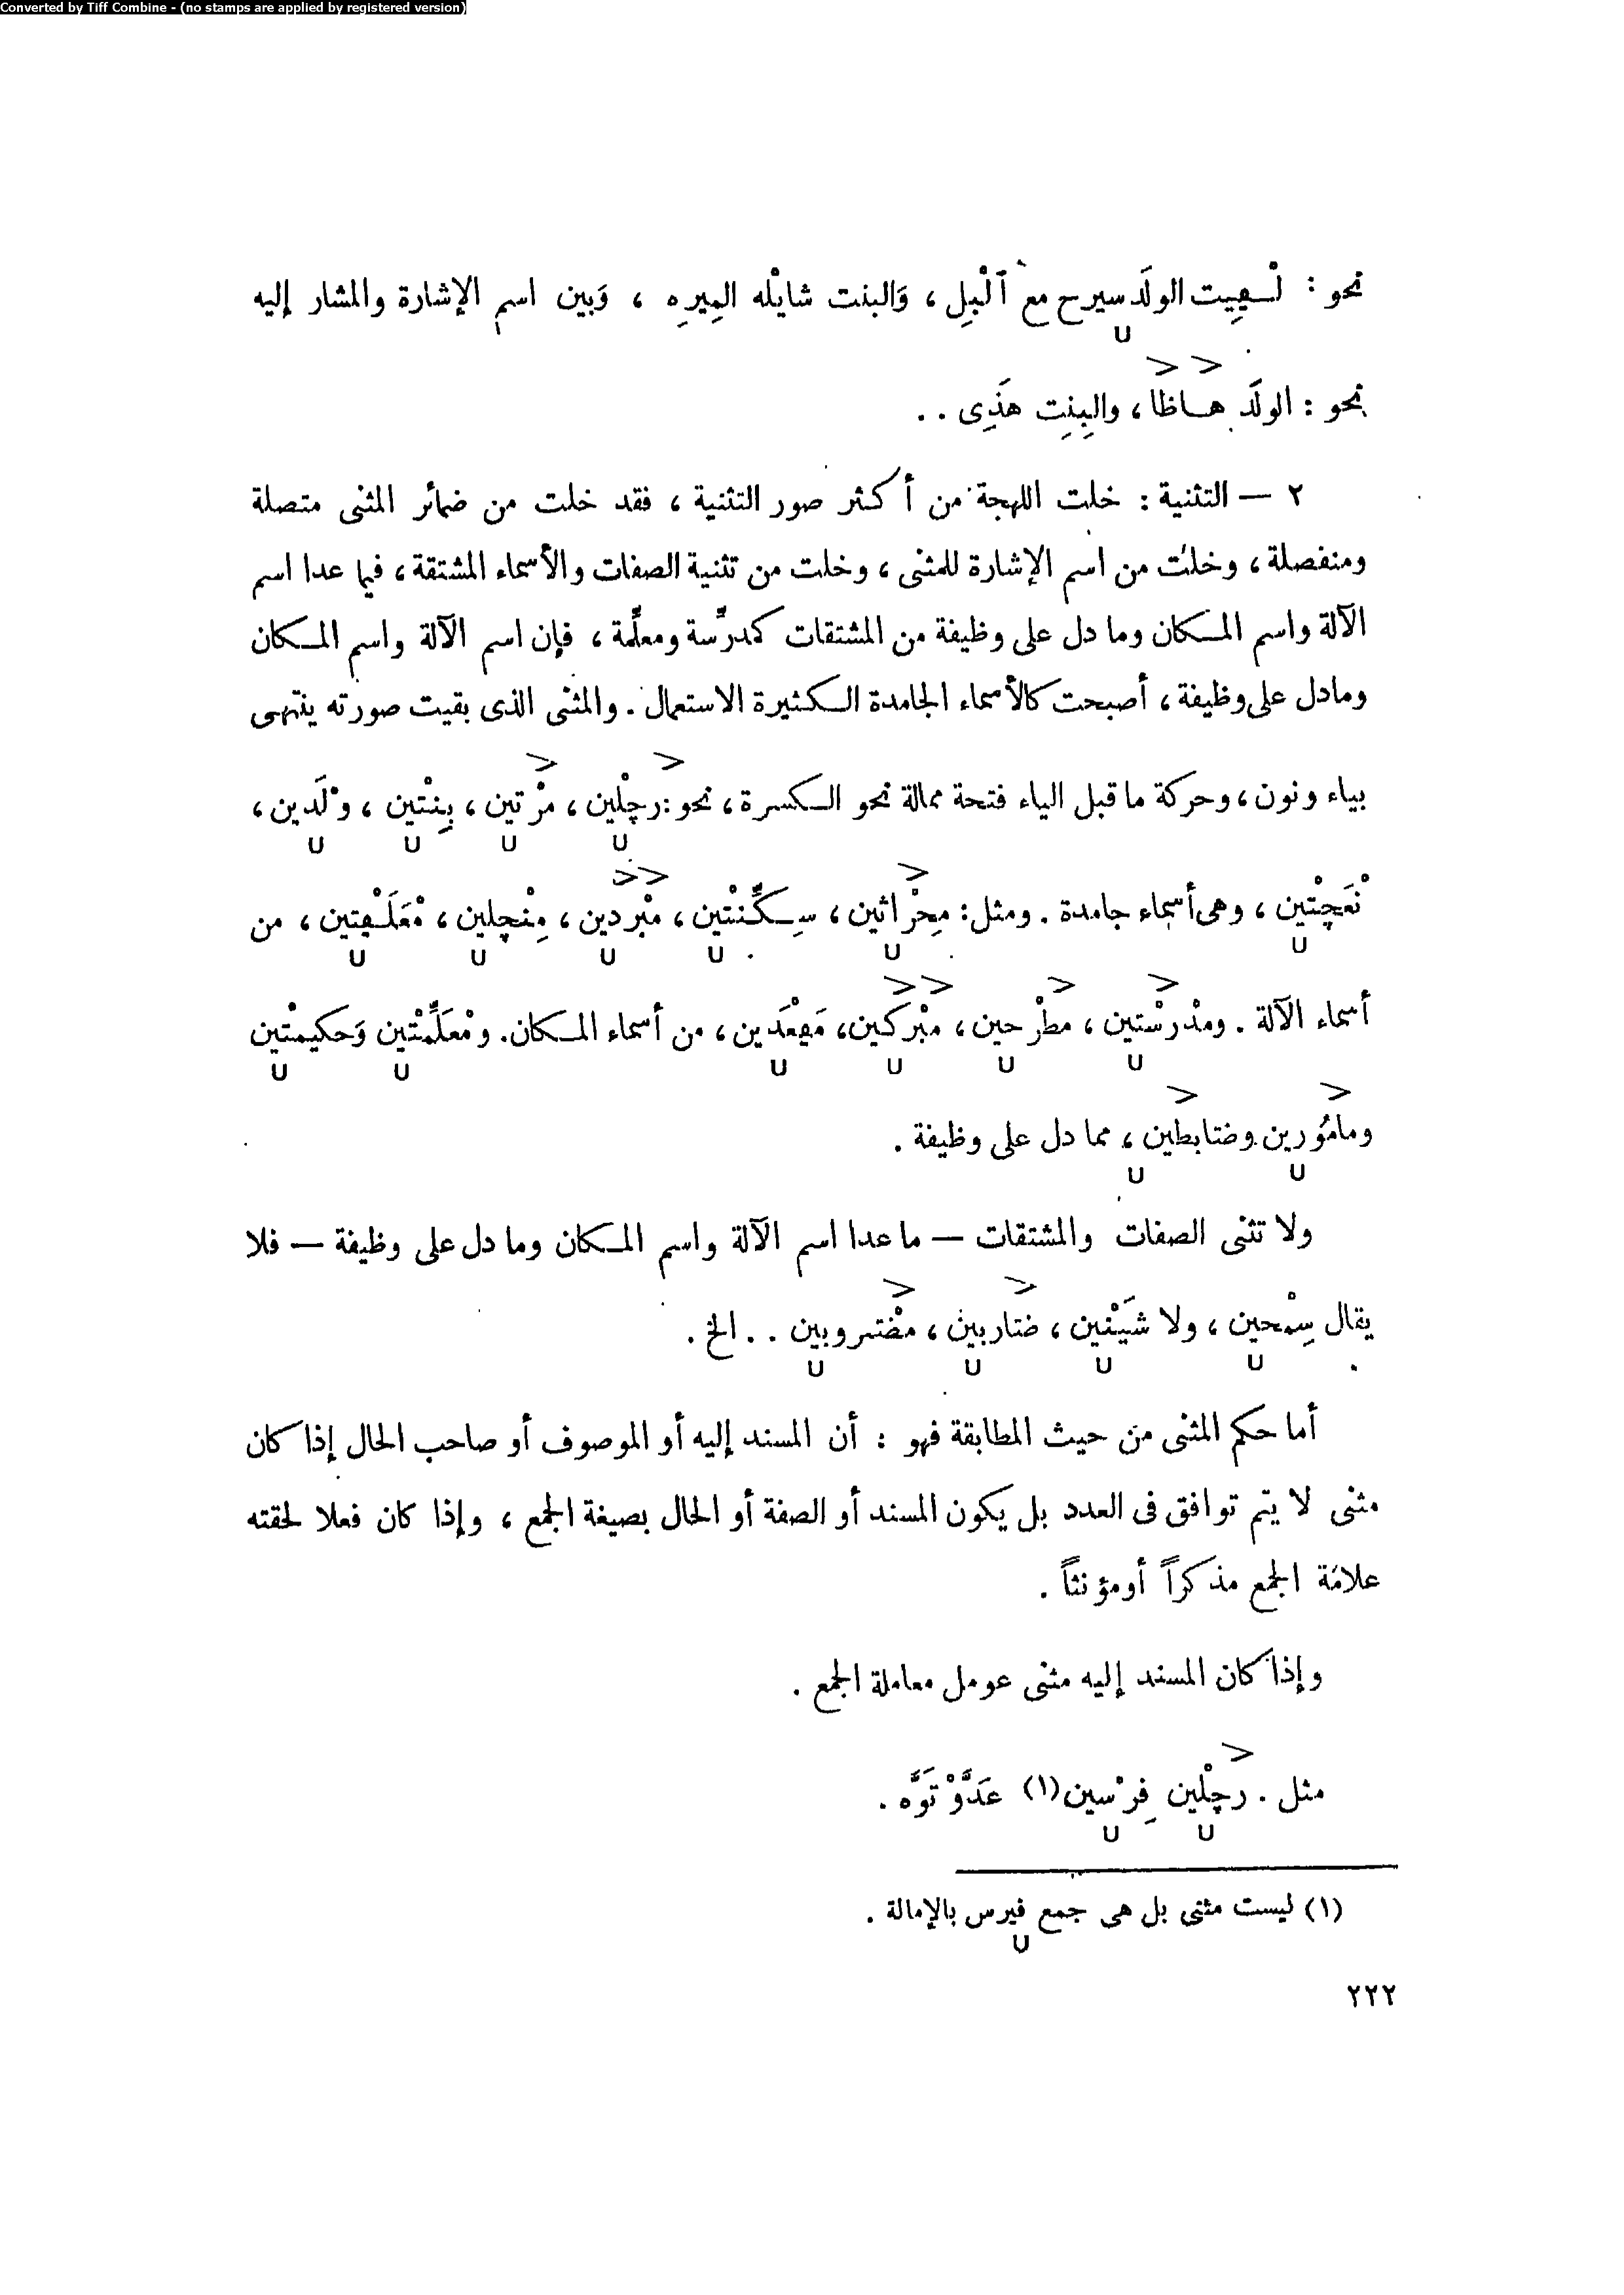 Converted by Tiff Combine - (no stamps are applied by registered version)
نحو : لْـڥِيِت الولَد سيرح مع ٱلْبِل ، وَالبنت شايْله المِيرِه ، وَبين اسم الإشارة والمشار إليه
نحو : الولَد هـاظا ، والبِنِت هَذِى . .
٢ — التثنية : خلت اللهجة من أكثر صور التثنية ، فقد خلت من ضمائر المثنى متصلة
ومنفصلة ، وخلت من اسم الإشارة للمثنى ، وخلت من تثنية الصفات والأسماء المشتقة ، فيما عدا اسم
الآلة واسم المـكان وما دل على وظيفة من المشتقات كمدرِّسة ومعلِّمة ، فإن اسم الآلة واسم المـكان
ومادل على وظيفة ، أصبحت كالأسماء الجامدة الـكثيرة الاستعمال . والمثنى الذى بقيت صورته ينتهى
بياء ونون ، وحركة ما قبل الياء فتحة ممالة نحو الـكسرة ، نحو : رچْلين ، مرْتين ، بِنْتين ، وْلَدين ،
نْعَچْتين ، وهى أسماء جامدة . ومثل : مِحْراثين ، سِـكِّنْتين ، مْبْردين ، مِنْچلين ، مْعَلَـڥْتين ، من
أسماء الآلة . ومدْرسْتين ، مطْرحين ، مبْركين ، مَڥْعَدين ، من أسماء المـكان. ومْعَلِّمْتين وَحكيمْتين
ومامُورين وضتابطين ، مما دل على وظيفة .
ولا تثنى الصفات والمشتقات — ما عدا اسم الآلة واسم المـكان وما دل على وظيفة — فلا
يقال سِمْحين ، ولا شَيْنين ، ضتاربين ، مضْتروبين . . الخ .
أما حكم المثنى من حيث المطابقة فهو : أن المسند إليه أو الموصوف أو صاحب الحال إذا كان
مثنى لا يتم توافق فى العدد بل يكون المسند أو الصفة أو الحال بصيغة الجمع ، وإذا كان فعلا لحقته
علامة الجمع مذكراً أو مؤنثاً .
وإذا كان المسند إليه مثنى عومل معاملة الجمع .
مثل . رچْلين فِرْسين (١) عَدَّوْ تَوَّه .
(١) ليست مثنى بل هى جمع فيرس بالإمالة .
٢٢٢